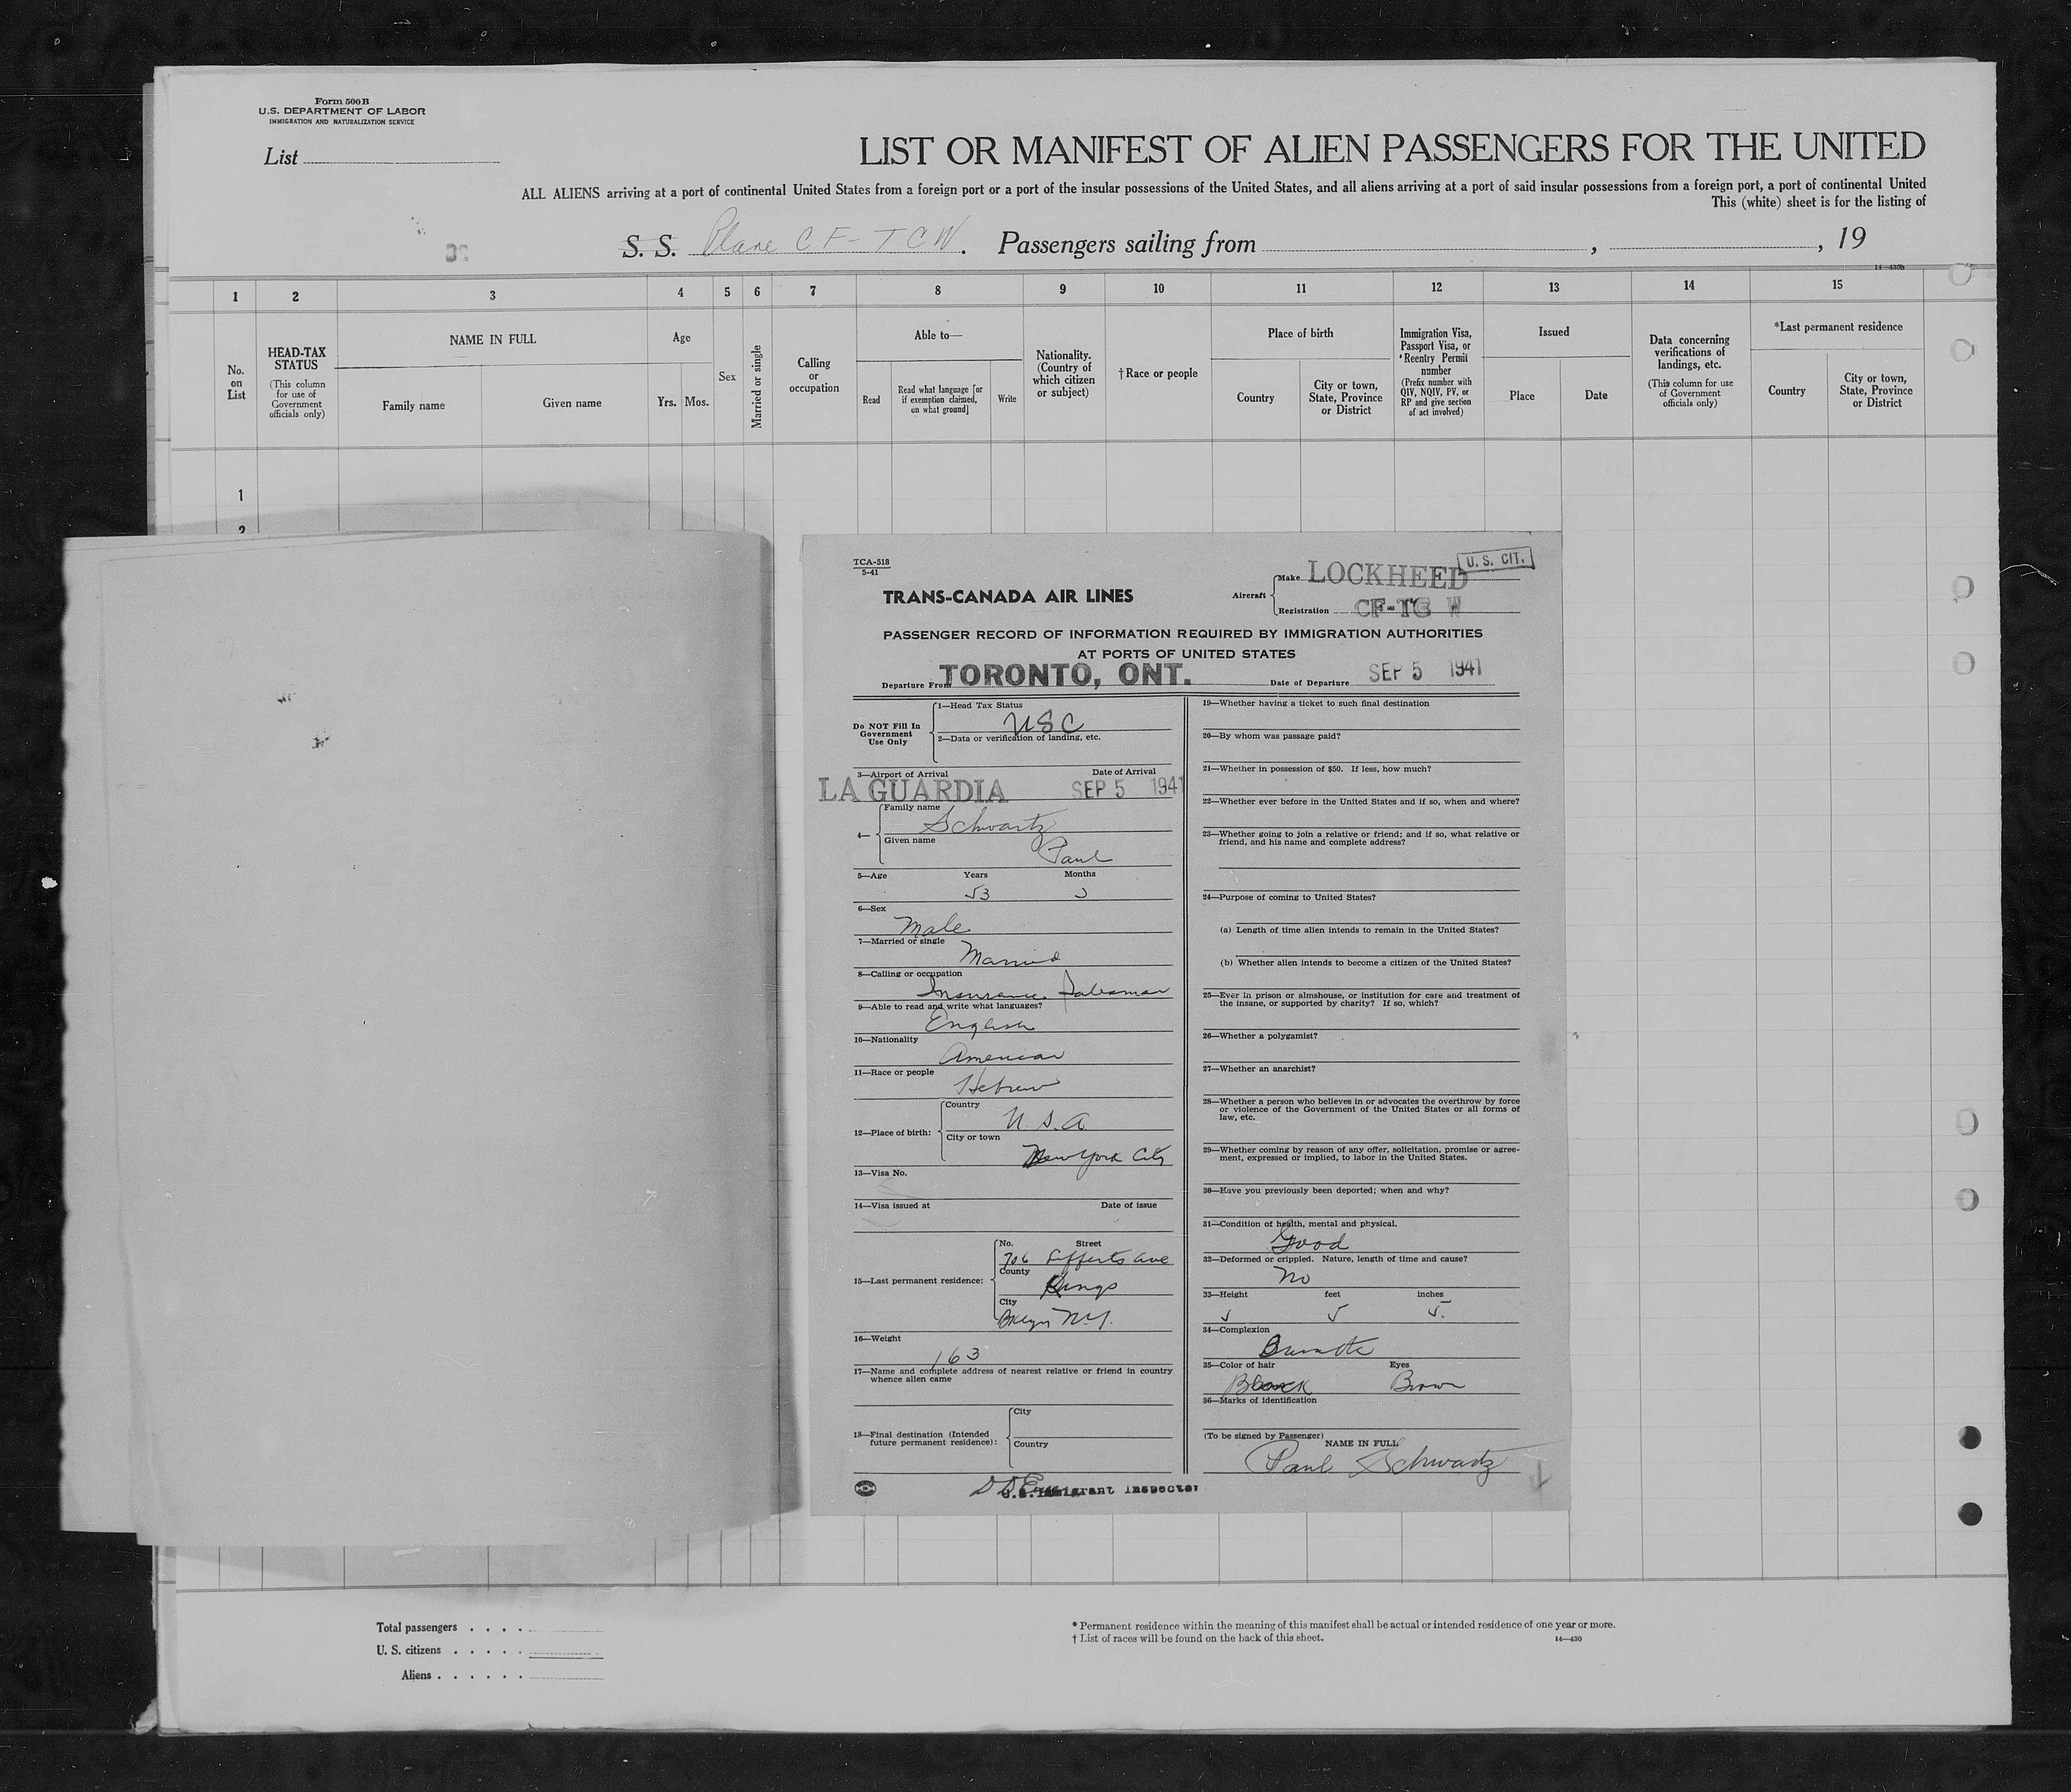 Form 500 B
U.S. DEPARTMENT OF LABOR
IMMIGRATION AND NATURALIZATION SERVICE
List
LIST OR MANIFEST OF ALIEN PASSENGERS FOR THE UNITED
ALL ALIENS arriving at a port of continental United States from a foreign port or a port of the insular possessions of the United States, and all aliens arriving at a port of said insular possessions from a foreign port, a port of continental United
This (white) sheet is for the listing of
S. S. Plane CF-TCW. Passengers sailing from , , 19
14—430B
1 2 3 4 5 6 7 8 9 10 11 12 13 14 15
No. on List
HEAD-TAX STATUS
(This column for use of Government officials only)
NAME IN FULL
Family name
Given name
Age
Yrs. Mos.
Sex
Married or single
Calling or occupation
Able to—
Read
Read what language [or if exemption claimed, on what ground]
Write
Nationality. (Country of which citizen or subject)
†Race or people
Place of birth
Country
City or town, State, Province or District
Immigration Visa, Passport Visa, or Reentry Permit number
(Prefix number with QIV, NQIV, PV, or RP and give section of act involved)
Issued
Place
Date
Data concerning verifications of landings, etc.
(This column for use of Government officials only)
*Last permanent residence
Country
City or town, State, Province or District
1
2
TCA-518
5-41
TRANS-CANADA AIR LINES
Aircraft
Make LOCKHEED
U. S. CIT.
Registration CF-TC W
PASSENGER RECORD OF INFORMATION REQUIRED BY IMMIGRATION AUTHORITIES
AT PORTS OF UNITED STATES
Departure From TORONTO, ONT. Date of Departure SEP 5 1941
Do NOT Fill In
Government
Use Only
1—Head Tax Status
USC
2—Data or verification of landing, etc.
3—Airport of Arrival Date of Arrival
LA GUARDIA SEP 5 1941
4—
Family name
Schwartz
Given name
Paul
5—Age Years Months
53
6—Sex
Male
7—Married or single
Married
8—Calling or occupation
Insurance Salesman
9—Able to read and write what languages?
English
10—Nationality
American
11—Race or people
Hebrew
12—Place of birth:
Country
U. S. A.
City or town
New York City
13—Visa No.
14—Visa issued at Date of issue
15—Last permanent residence:
No. Street
706 Lefferts Ave
County
Kings
City
Bklyn N.Y.
16—Weight
163
17—Name and complete address of nearest relative or friend in country
whence alien came
18—Final destination (Intended
future permanent residence):
City
Country
19—Whether having a ticket to such final destination
20—By whom was passage paid?
21—Whether in possession of $50. If less, how much?
22—Whether ever before in the United States and if so, when and where?
23—Whether going to join a relative or friend; and if so, what relative or
friend, and his name and complete address?
24—Purpose of coming to United States?
(a) Length of time alien intends to remain in the United States?
(b) Whether alien intends to become a citizen of the United States?
25—Ever in prison or almshouse, or institution for care and treatment of
the insane, or supported by charity? If so, which?
26—Whether a polygamist?
27—Whether an anarchist?
28—Whether a person who believes in or advocates the overthrow by force
or violence of the Government of the United States or all forms of
law, etc.
29—Whether coming by reason of any offer, solicitation, promise or agree-
ment, expressed or implied, to labor in the United States.
30—Have you previously been deported; when and why?
31—Condition of health, mental and physical.
Good
32—Deformed or crippled. Nature, length of time and cause?
No
33—Height feet inches
5 5
34—Complexion
Brunette
35—Color of hair Eyes
Black Brown
36—Marks of identification
(To be signed by Passenger)
NAME IN FULL
Paul Schwartz
U.S. Immigrant Inspector
Total passengers . . . .
U. S. citizens . . . . .
Aliens . . . . . .
* Permanent residence within the meaning of this manifest shall be actual or intended residence of one year or more.
† List of races will be found on the back of this sheet. 14—430